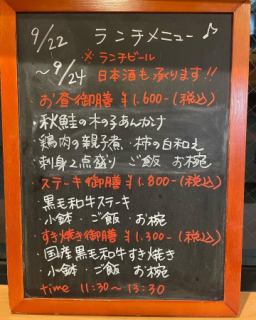 9/22 ランチメニュー♪
※ランチビール
～9/24 日本酒も承ります!!
お昼御膳 ¥1.600-(税込)
・秋鮭の木の子あんかけ
・鶏肉の親子煮・柿の白和え
・刺身2点盛り ご飯 お椀
・ステーキ御膳 ¥1.800-(税込)
・黒毛和牛ステーキ
・小鉢・ご飯・お椀
・すき焼き御膳 ¥1.300-(税込)
・国産黒毛和牛すき焼き
・小鉢・ご飯 お椀
time 11:30~13:30